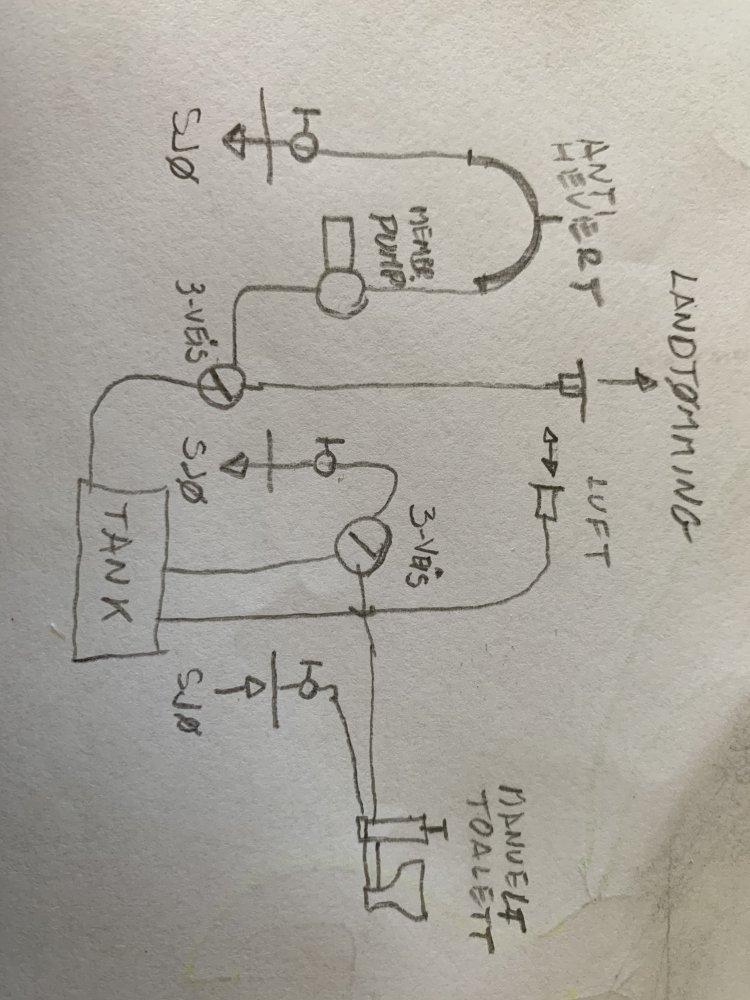 LANDTØMMING
ANTI
HEVERT
LUFT
MANUELT
TOALETT
MEMBR.
PUMP
3-VEIS
3-VEIS
SJØ
SJØ
SJØ
TANK